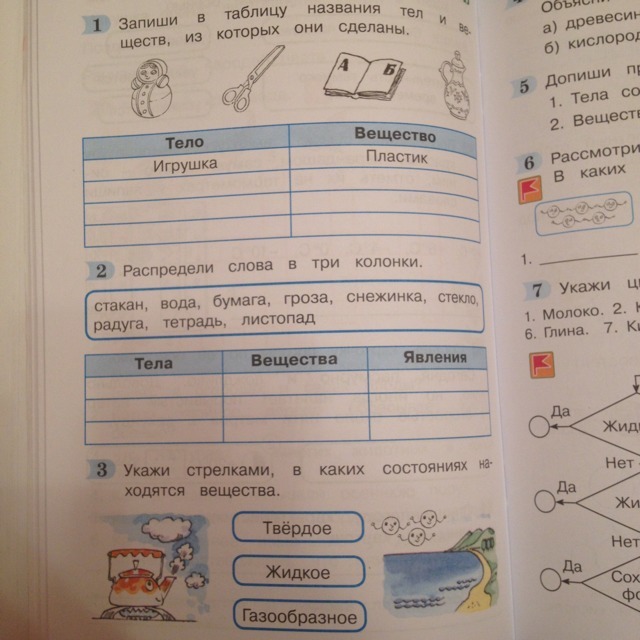 1 Запиши в таблицу названия тел и ве-
ществ, из которых они сделаны.
А Б
Тело Вещество
Игрушка Пластик
2 Распредели слова в три колонки.
стакан, вода, бумага, гроза, снежинка, стекло,
радуга, тетрадь, листопад
Тела Вещества Явления
3 Укажи стрелками, в каких состояниях на-
ходятся вещества.
Твёрдое
Жидкое
Газообразное
а) древесин
б) кислород
5 Допиши
1. Тела
2. Веществ
6 Рассмотри
В каких
1.
7 Укажи
1. Молоко. 2.
6. Глина. 7.
Да
Нет
Да
Нет
Да